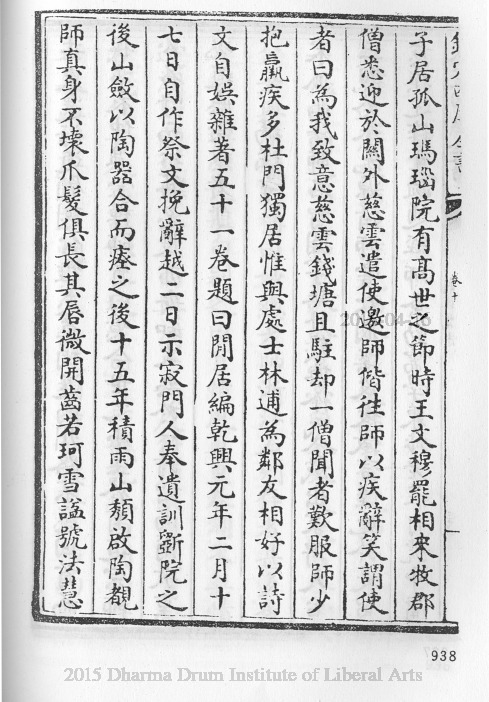 欽定四庫全書
卷十
子居孤山瑪瑙院有髙世之節時王文穆罷相來牧郡
僧悉迎於關外慈雲遣使邀師偕徃師以疾辭笑謂使
者曰為我致意慈雲錢塘且駐却一僧聞者歎服師少
抱羸疾多杜門獨居惟與處士林逋為鄰友相好以詩
文自娛雜著五十一卷題曰閒居編乾興元年二月十
七日自作祭文挽辭越二日示寂門人奉遺訓斵院之
後山斂以陶器合而瘞之後十五年積雨山頽啟陶覩
師真身不壞爪髮俱長其唇微開齒若珂雪諡號法慧
938
2015 Dharma Drum Institute of Liberal Arts